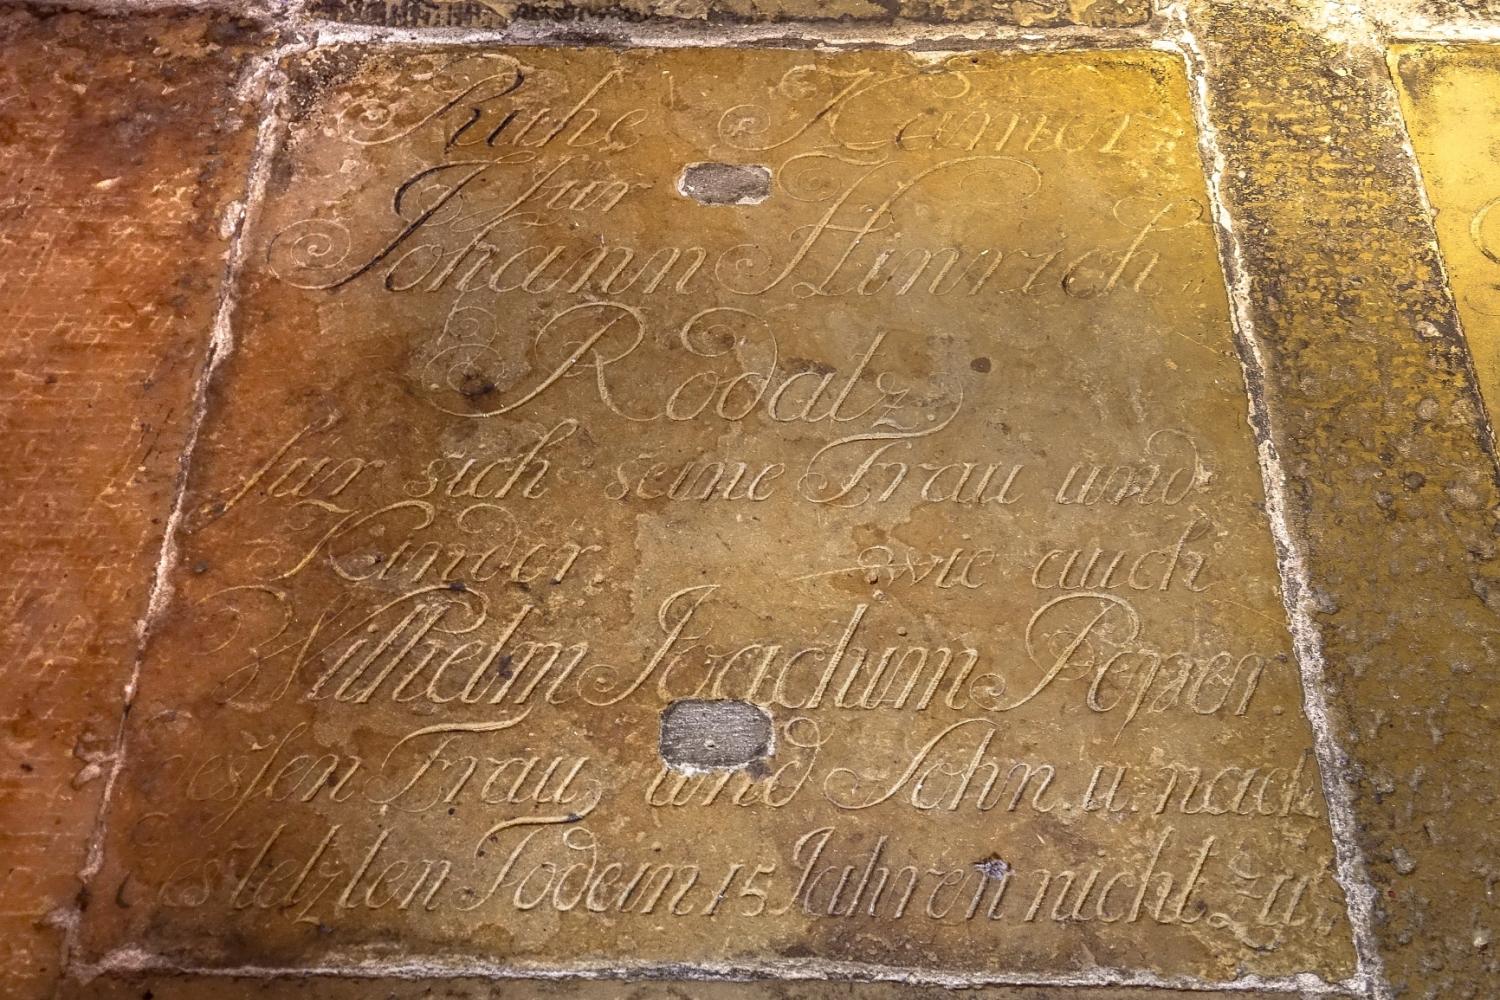 Ruhe Kamer
für
Johann Hinrich
Rodatz
fur sich seine Frau und
Kinder wie auch
Wilhelm Joachim Peper
dessen Frau und Sohn. u. nach
des letzten Tode in 15 Jahren nicht zu